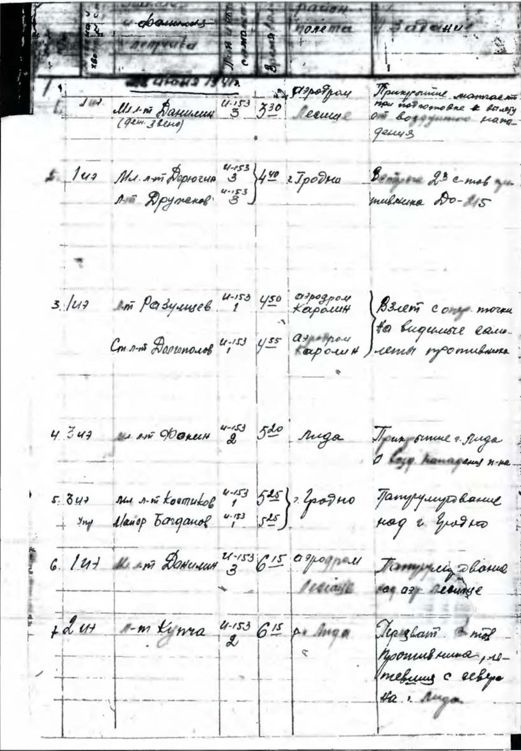 фамилия района
летчика полета Задание
22 июня 1941г.
1. 1 иэ Мл. л-т Данилин И-153 3 3 30 аэродром Прикрытие матчасти
(дем. звено) Лесище при подготовке к вылету
от воздушного напа-
дения
2. 1 иэ Мл. л-т Дерюгин И-153 3 4 40 г. Гродно 23 с-тов про-
л-т Дружков И-153 3 тивника До-215
3. 1 иэ л-т Разумцев И-153 1 4 50 аэродром Каролин Взлет с опер. точки
на видимые само-
Ст. л-т Долгополов И-153 1 4 55 аэродром Каролин леты противника
4. 3 иэ мл. л-т Фокин И-153 2 5 20 Лида Прикрытие г. Лида
возд. нападения п-ка
5. 3 иэ мл. л-т Костиков И-153 1 5 25 г. Гродно Патрулирование
Упр Майор Богданов И-153 1 5 25 над г. Гродно
6. 1 иэ Мл. л-т Данилин И-153 3 6 15 аэродром Патрулирование
Лесище над аэр. Лесище
7. 2 иэ л-т Купча И-153 2 6 15 Лида Перехват с-тов
противника, ле-
тевших с севера
на г. Лида